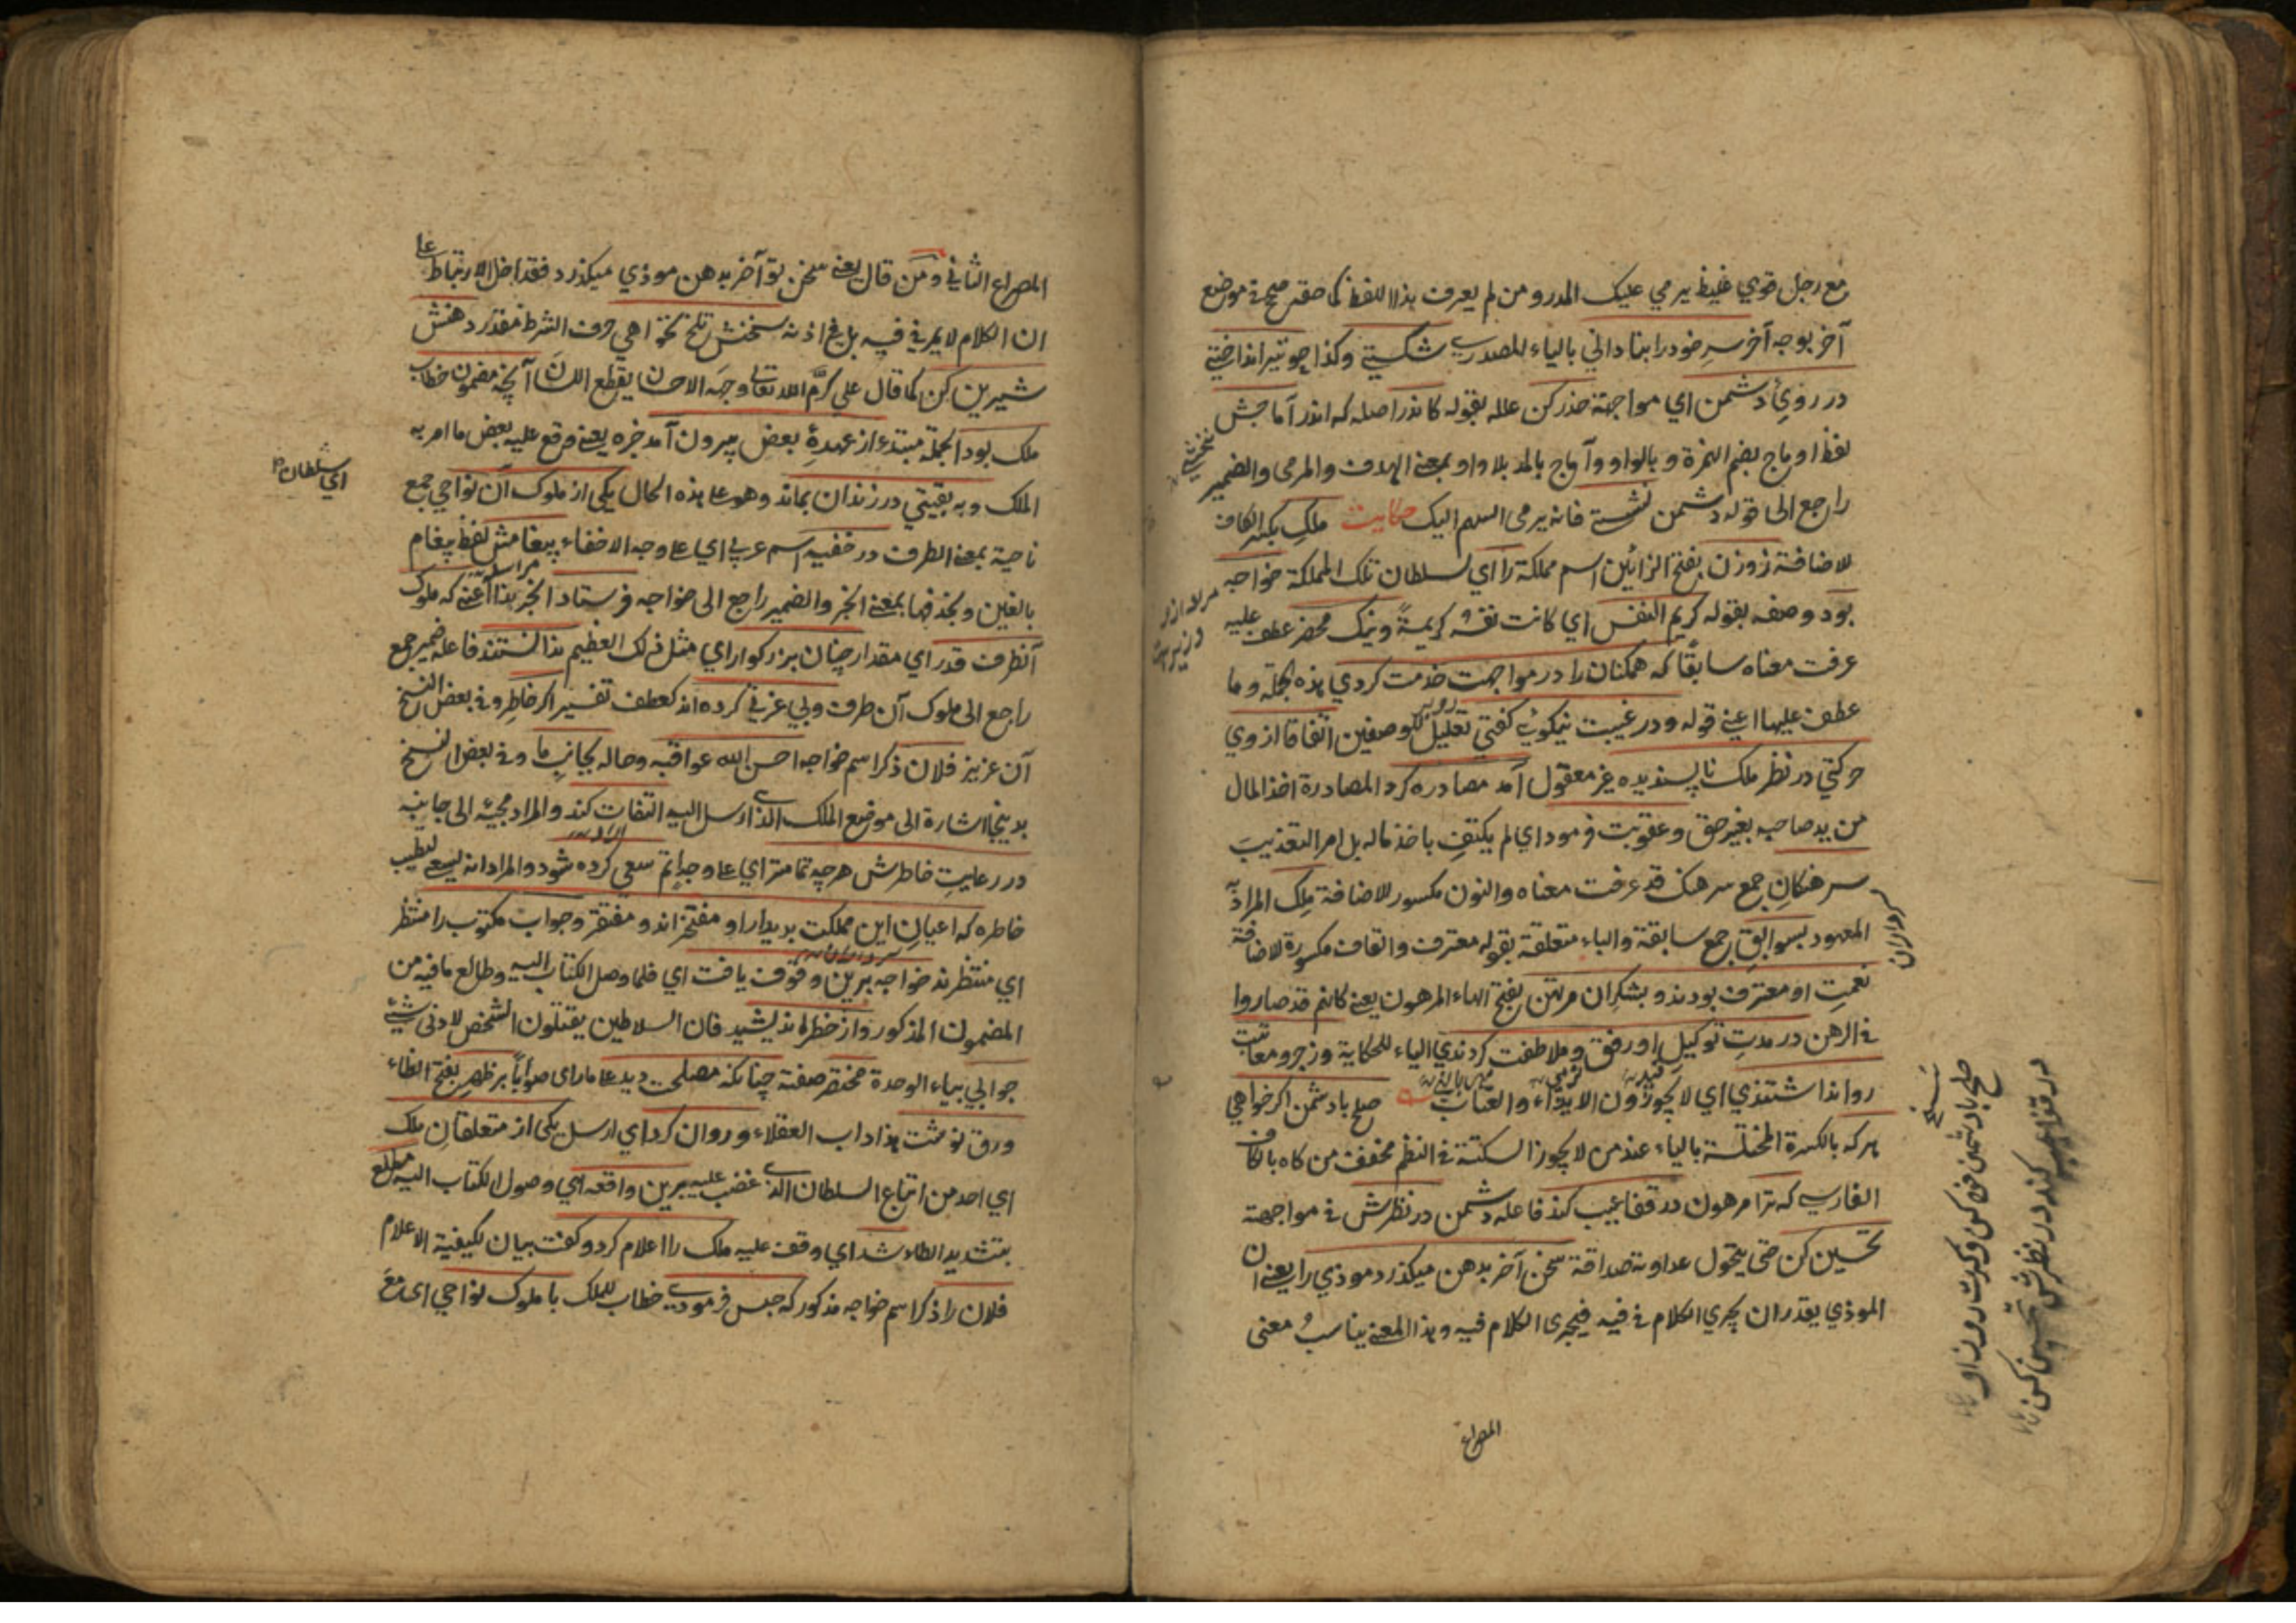 مع رجل قوي غليظ يرمي عليك المدر ومن لم يعرف هذا اللفظ كما حقه صحح في موضع
آخر بوجه آخر سرِ خود را بنادانی بالياء المصدري شکستی وكذا چو تير انداختی
در روئ دشمن اي مواجهة حذر کن علله بقوله کاندر اصله که اندر آماجش
لفظ اوماج بضم الهمزة وبالواو وآماج بالمد بلا واو بمعنى الهدف والمرمى والضمير
راجع الى قوله دشمن نشستی فانه يرمى السهم اليك حکایت ملكِ بكسر الكاف
للاضافة زوزن بفتح الزائين اسم مملكة را اي لسلطان تلك المملكة خواجه
بود وصفه بقوله كريم النفس اي كانت نفسه كريمةً ونيك محضر عطف عليه
عرفت معناه سابقًا كه همكنان را در مواجهت خدمت كردي هذه الجملة وما
عطف عليها اعني قوله ودر غيبت نيكويى كفتي تعليل للوصفين اتفاقا از وي
حركتي در نظر ملك ناپسنديده غير معقول آمد مصادره كرد المصادرة اخذ المال
من يد صاحبه بغير حق وعقوبت فرمود اي لم يكتفِ باخذ ماله بل امر التعذيب
سرهنكانِ جمع سرهنك قد عرفت معناه والنون مكسور للاضافة ملِك المراد به
المعهود بسوابقِ جمع سابقة والباء متعلقة بقوله معترف والقاف مكسورة للاضافة
نعمتِ او معترف بودند وبشكران مرتهن بفتح الهاء المرهون يعني كانهم قد صاروا
في الرهن در مدتِ توكيلِ او رفق وملاطفت كردندي الياء للحكاية وزجر ومعاتبت
روا نداشتندي اي لا يجوزون الايذاء والعتاب صلح با دشمن اكر خواهي
هركه بالكسرة المختلسة بالياء عند من لا يجوز السكتة في النظم مخفف من كاه بالكاف
الفارسي كه ترا مرهون در قفا عيب كند فاعله دشمن در نظرش في مواجهته
تحسين كن حتى يتحول عداوته صداقة سخن آخر بدهن ميكذرد موذي را يعني ان
الموذي يقدر ان يجري الكلام في فيه فيجرى الكلام فيه وهذا المعنى يناسبُ معنى
المصراع
سرداران
صلح با دشمن
در قفا عيب كند در نظرش تحسين كن
المصراع الثاني ومَن قال يعني سخن تو آخر بدهن موذي ميكذرد فقد اخل الارتباط على
ان الكلام لا يمر في فيه بل في اذنه سخنش تلخ نخواهي حرف الشرط مقدر دهنش
شيرين كن كما قال علي كرَّم الله تعالى وجهَه الاحسان يقطع اللسان آنچه مضمون خطاب
ملك بود الجملة مبتدء از عهدهٔ بعض بيرون آمد خبره يعني وقع عليه بعض ما امر به
الملك وبه بقيتي در زندان بماند وهو على هذه الحال يكى از ملوك آن نواحي جمع
ناحية بمعنى الطرف در خفيه اسم عربي اي على وجه الاخفاء پيغامش لفظ پيغام
بالغين وبحذفها بمعنى الخبر والضمير راجع الى خواجه فرستاد الخبر هذا اعني كه ملوك
آنطرف قدر اي مقدار چنان بزركوار اي مثل ذلك العظيم ندانستند فاعله ضمير جمع
راجع الى ملوك آن طرف وبي عزتي كرده اند كعطف تفسير اكر خاطرِ وفي بعض النسخ
آن عزيز فلان ذكر اسم خواجه احسن الله عواقبه وحاله بجانبِ ما وفي بعض النسخ
بدينجا اشارة الى موضع الملك الذي ارسل اليه التفات كند والمراد مجيئه الى جانبه
در رعايتِ خاطرش هرچه تمامتر اي على وجه اتم سعي كرده شود والمراد انه ليسعى لتطييب
خاطره كه اعيانِ اين مملكت بديدار او مفتخر اند ومفتقر وجواب مكتوب را منتظر
اي منتظرند خواجه برين وقوف يافت اي فلما وصل الكتاب اليه وطالع ما فيه من
المضمون المذكور واز خطر انديشيد فان السلاطين يقتلون الشخص لادنى شيئ
جوابي بياء الوحدة مختصر صفته چنانكه مصلحت ديد على ما راى صوابًا بر ظهرِ بفتح الظاء
ورق نوشت هذا داب العقلاء وروان كرد اي ارسل يكى از متعلقانِ ملك
اي احد من اتباع السلطان الذي غضب عليه برين واقعه اي وصول الكتاب اليه مطلع
بتشديد الطاء شد اي وقف عليه ملك را اعلام كرد وكفت بيان لكيفية الاعلام
فلان را ذكر اسم خواجه مذكور كه حبس فرمودي خطاب للملك با ملوك نواحي اى مع
اي سلطان